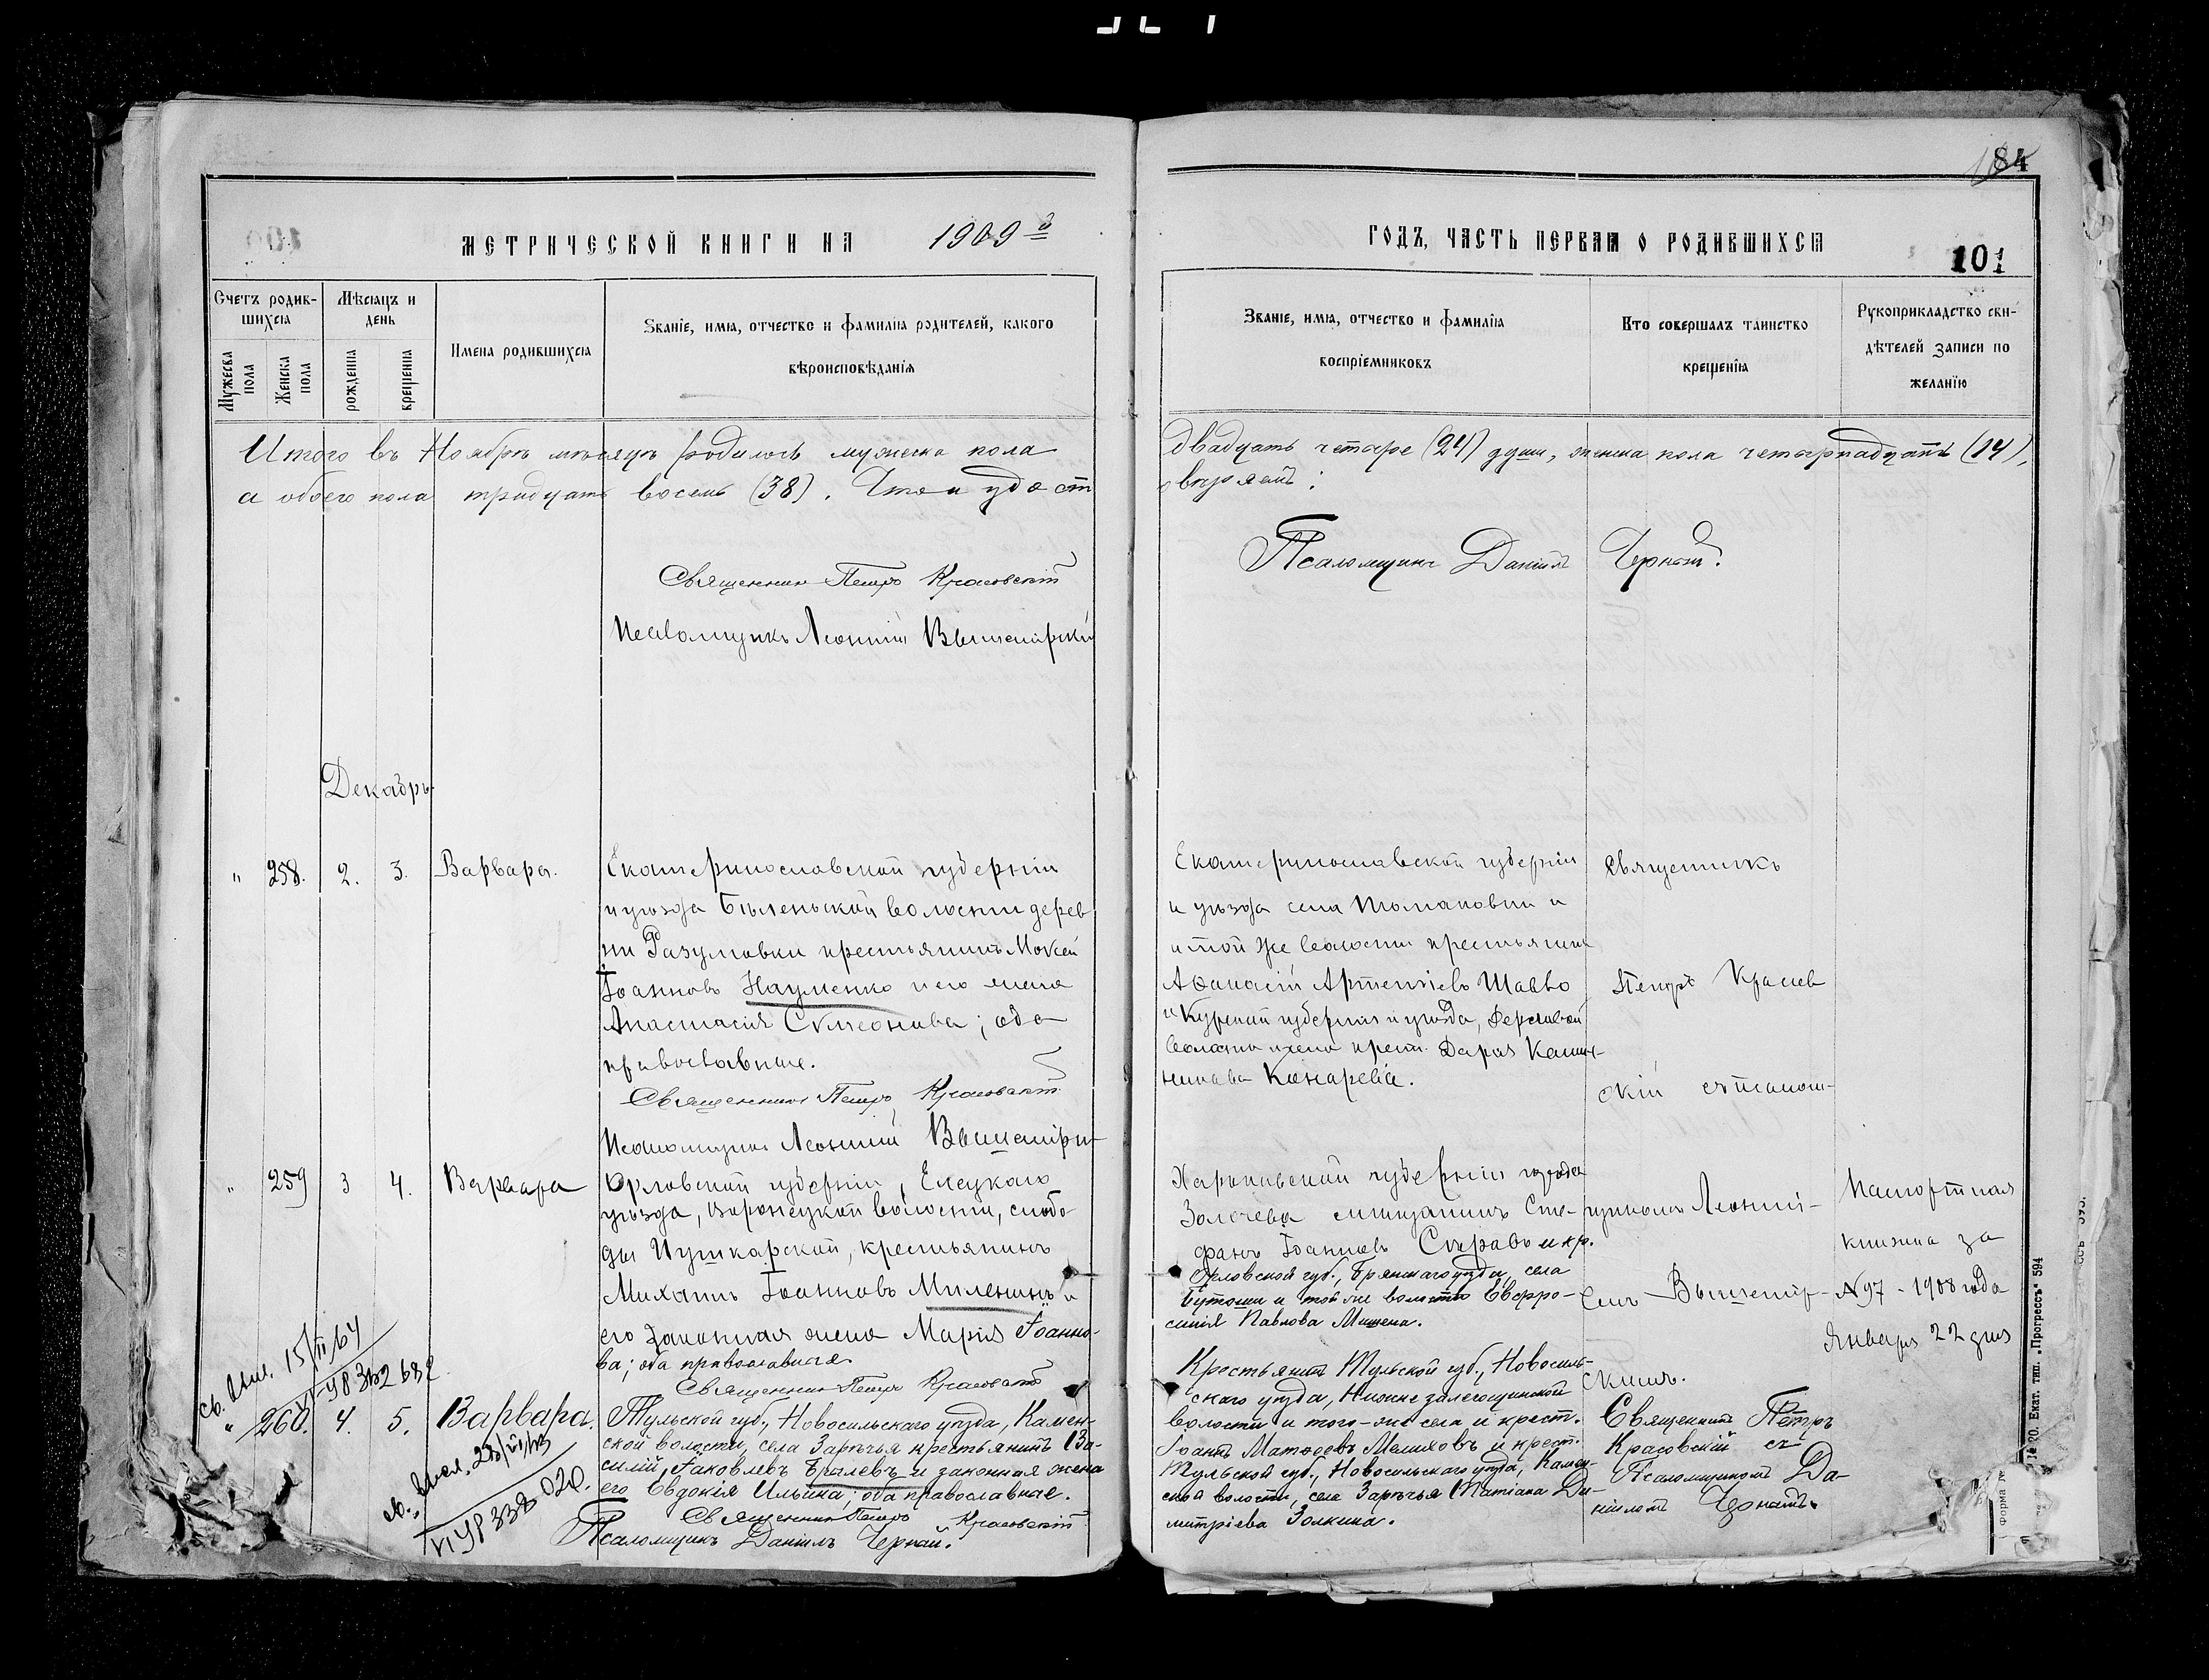 84
МЕТРИЧЕСКОЙ КНИГИ НА 1909й
ГОДЪ, ЧАСТЬ ПЕРВАЯ О РОДИВШИХСЯ
101
Счетъ родившихся
Мужеска пола
Женска пола
Мѣсяцъ и день
рожденія
крещенія
Имена родившихся
Званіе, имя, отчество и фамилія родителей, какого
вѣроисповѣданія
Званіе, имя, отчество и фамилія
воспріемниковъ
Кто совершалъ таинство
крещенія
Рукоприкладство сви-
дѣтелей записи по
желанію
Итого въ Ноябрѣ мѣсяцѣ родилось мужеска пола
двадцать четыре (24) души, женска пола четырнадцать (14),
а обоего пола тридцать восемь (38). Что и удост
овѣряемъ:
Священникъ Петръ Красовскій
Псаломщикъ Даніилъ Чорный.
Псаломщикъ Леонтій Вышемірскій
Декабрь
" 258. 2. 3. Варвара.
Екатеринославской губерніи
и уѣзда Бѣленьской волости дерев
ни Разумовки крестьянинъ Мокей
Іоанновъ Науменко и его жена
Анастасія Сѵмеонова; оба
православные.
Священникъ Петръ Красовскій
Псаломщикъ Леонтій Вышемірскі
Екатеринославской губерніи
и уѣзда села Томаковки и
и той же волости крестьянинъ
Аѳанасій Артемьевъ Шавло
и Курской губерніи и уѣзда,
волости крест. Дарія
Канарева.
Священникъ
Петръ Красов
скій съ псалом-
щикомъ Леонті-
емъ Вышемір-
скимъ.
" 259 3 4. Варвара
Орловской губерніи, Елецкаго
уѣзда, Воронецкой волости, слобо
ды Пушкарской, крестьянинъ
Михаилъ Іоанновъ Миленинъ и
его законная жена Марія Іоанно-
ва; оба православные.
Священникъ Петръ Красовскій
Харьковской губерніи города
Золочева мѣщанинъ Сте-
фанъ Іоанновъ и кр.
Орловской губ., Брянскаго уѣзда, села
Бутоши и той же волости Евфро-
синія Павлова Мишена.
Паспортная
книжка за
№97 - 1908 года
Января 22 дня
св. выл. 15/II/64
" 260. 4. 5. Варвара.
Тульской губ., Новосильскаго уѣзда, Камен-
ской волости, села Зарѣчья крестьянинъ Ва-
силій Іаковлевъ Бралевъ и законная жена
его Евдокія Ильина; оба православные.
Священникъ Петръ Красовскій
Псаломщикъ Даніилъ Чорный.
VI УР 338 020.
Крестьянинъ Тульской губ., Новосиль-
скаго уѣзда, Нижне залегощинской
волости и того-же села и крест.
Іоаннъ Матѳеевъ Мелиховъ и крест.
Тульской губ., Новосильскаго уѣзда, Камен-
ской волости, села Зарѣчья Татіана Ди-
митріева Золкина.
Священникъ Петръ
Красовскій съ
Псаломщикомъ Да-
ніиломъ Чорнымъ.
№ 20. Екат. тип. „Прогрессъ" 594
Форма №